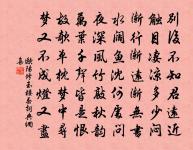 別後不知君遠近
觸目淒涼多少悶
漸行漸遠漸無書
水闊魚沉何處問
夜深風竹敲秋韻
萬葉千聲皆是恨
故欹單枕夢中尋
夢又不成燈又燼
歐陽修玉樓春詞典網
集